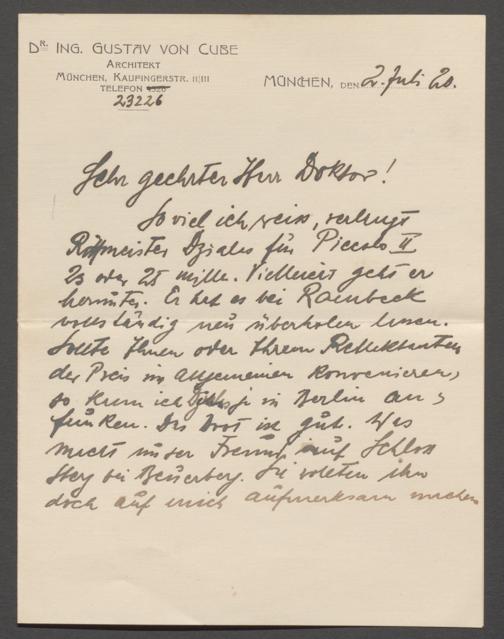 Dr. Ing. Gustav von Cube
Architekt
München, Kaufingerstr. 11/III
Telefon
23226
München, den 2. Juli 20.
Sehr geehrter Herr Doktor!
So viel ich weiss, verlangt
Rittmeister für Piccolo II
23 oder 25 mille. Vielleicht geht er
herunter. Er hat es bei Rambeck
vollständig neu überholen lassen.
Sollte Ihnen oder Ihrem Reflektanten
der Preis im allgemeinen konvenieren,
so kann ich in Berlin an-
funken. Das Boot ist gut. Was
macht unser Freund auf Schloss
bei Beuerberg. Sie wollten ihn
doch auf mich aufmerksam machen